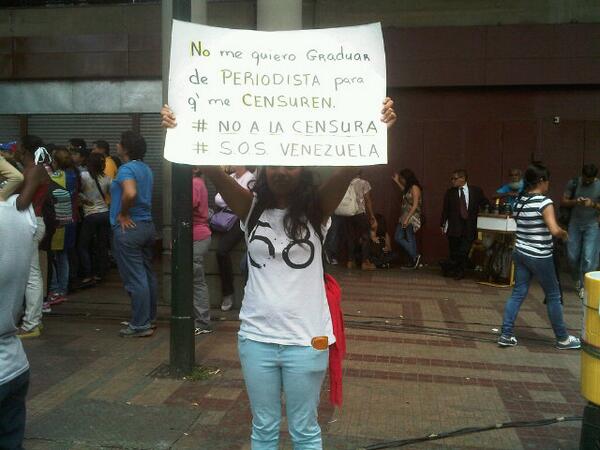 No me quiero GRADUAR
de PERIODISTA para
q' me CENSUREN.
# NO A LA CENSURA
# S.O.S. VENEZUELA
58